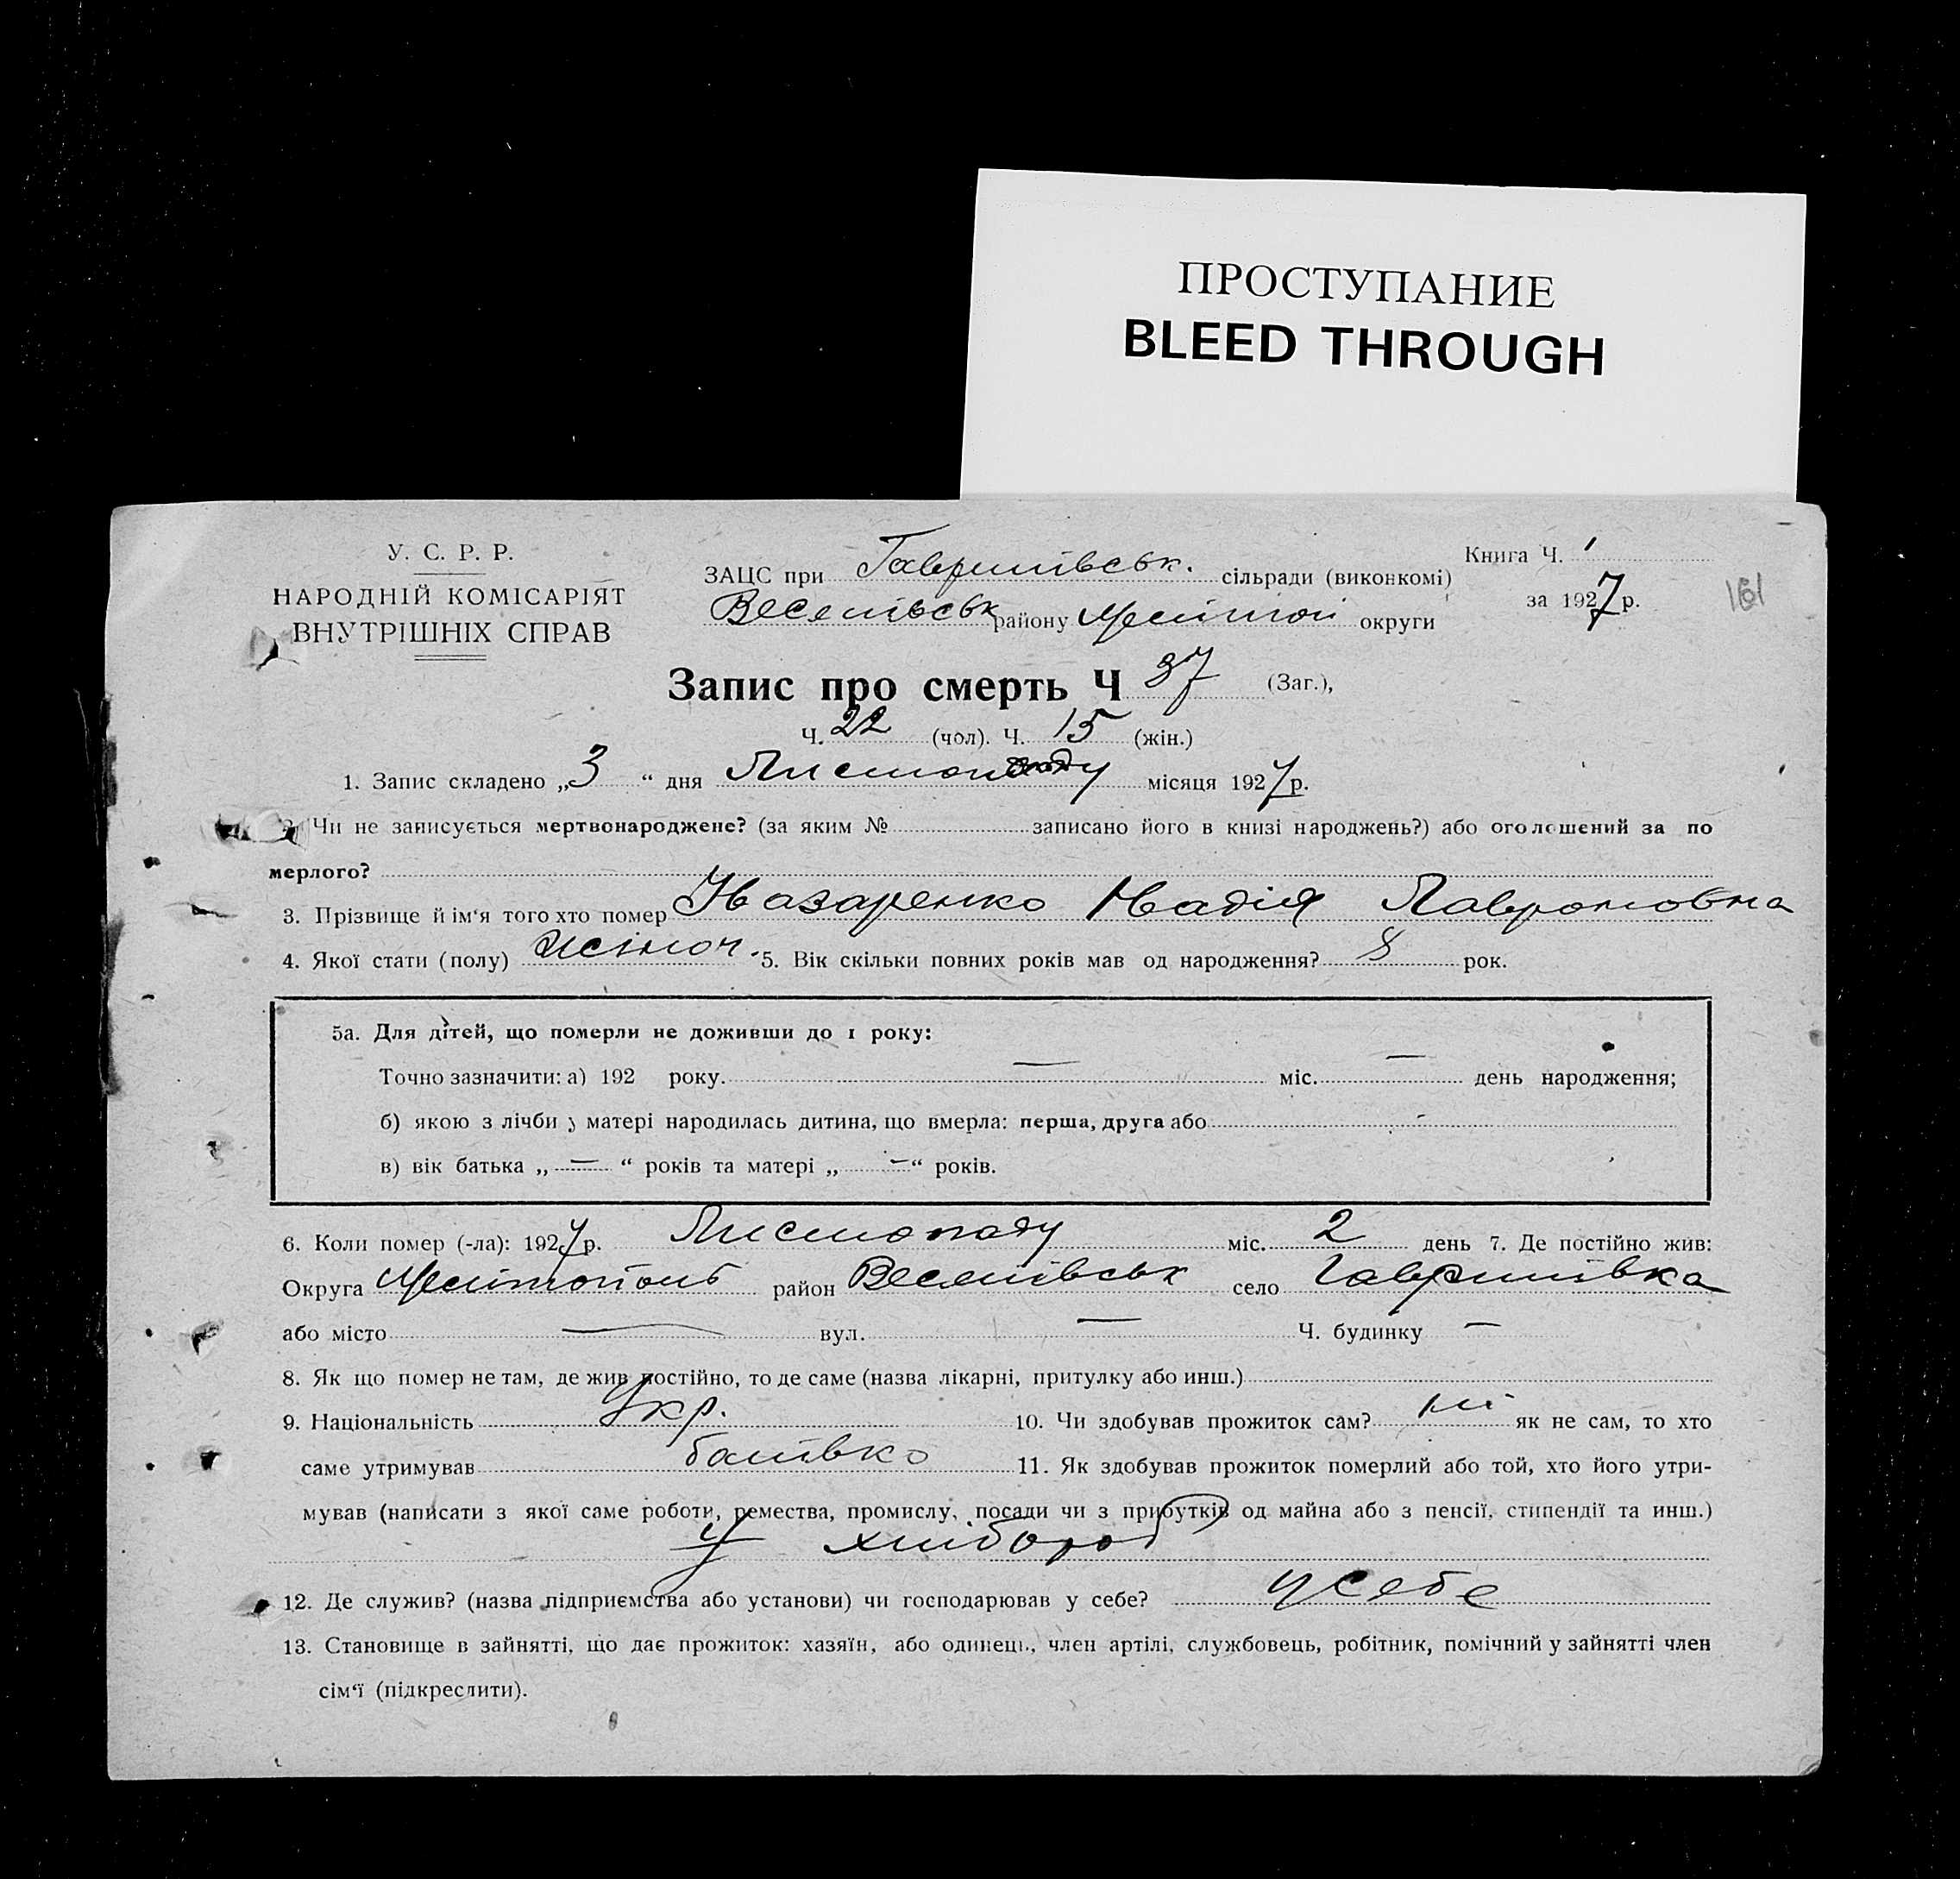 ПРОСТУПАНИЕ
BLEED THROUGH
У. С. Р. Р.
НАРОДНІЙ КОМІСАРІЯТ
ВНУТРІШНІХ СПРАВ
ЗАЦС при Гаврилівськ. сільради (виконкомі)
Веселівськ району Мелітоп округи
Книга Ч. 1
за 1927 р.
161
Запис про смерть Ч 37 (Заг.),
Ч. 22 (чол). Ч. 15 (жін.)
1. Запис складено „3“ дня Листопаду місяця 1927 р.
2. Чи не записується мертвонароджене? (за яким № записано його в книзі народжень?) або оголошений за по
мерлого?
3. Прізвище й ім‘я того хто помер Назаренко Надія Лавроновна
4. Якої стати (полу) жіноч. 5. Вік скільки повних років мав од народження? 8 рок.
5а. Для дітей, що померли не доживши до 1 року:
Точно зазначити: а) 192 року. — міс. — день народження;
б) якою з лічби у матері народилась дитина, що вмерла: перша, друга або -
в) вік батька „ — “ років та матері „ — “ років.
6. Коли помер (-ла): 1927 р. Листопаду міс. 2 день 7. Де постійно жив:
Округа Мелітопольь район Веселівськ село Гаврилівка
або місто — вул. — Ч. будинку —
8. Як що помер не там, де жив постійно, то де саме (назва лікарні, притулку або инш.)
9. Національність Укр. 10. Чи здобував прожиток сам? ні як не сам, то хто
саме утримував батівко 11. Як здобував прожиток померлий або той, хто його утри-
мував (написати з якої саме роботи, ремества, промислу, посади чи з прибутків од майна або з пенсії, стипендії та инш.)
хлібороб
12. Де служив? (назва підприємства або установи) чи господарював у себе? у себе
13. Становище в зайнятті, що дає прожиток: хазяїн, або одинець, член артілі, службовець, робітник, помічний у зайнятті член
сім‘ї (підкреслити).